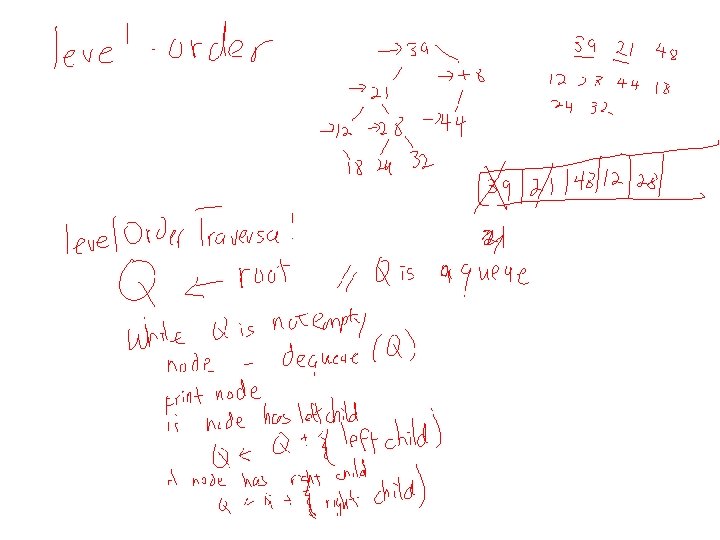 level-order
→39
→21 →48
→12 →28 →44
18 24 32
39 21 48
12 28 44 18
24 32
39 21 48 12 28
21
levelOrder Traversal
Q ← root // Q is a queue
While Q is not empty
node - dequeue (Q)
print node
is node has left child
Q ← Q + { left child)
if node has right child
Q = Q + { right child)